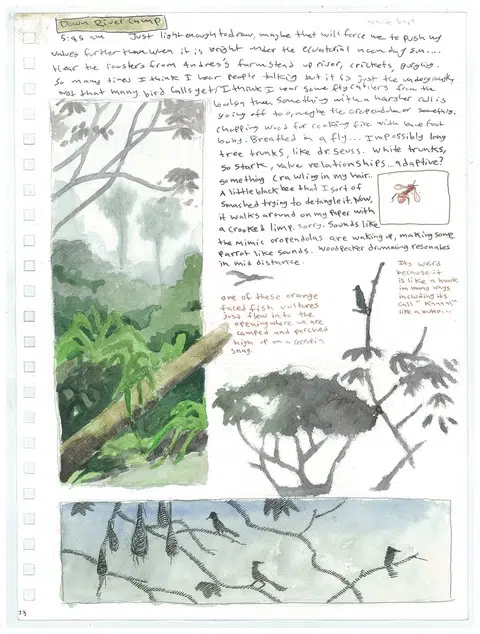 Down River Camp
Just light enough to draw, maybe that will force me to push my
values further than when it is bright under the ecuatorial noonday sun....
Hear the roosters from Andres's farmstead up river, crickets, gurgling.
So many times I think I hear people talking but it is just the
not that many bird calls yet/I think I hear some flycatchers from the
. Something with a harsher call is
going off too, maybe the oropendula or something.
chopping wood for cooking fire with bare foot
baby. Breathed in a fly... Impossibly long
tree trunks, like dr. Seuss. White trunks,
so stark, value relationships... adaptive?
something crawling in my hair..
A little black bee that I sort of
smashed trying to detangle it. Now,
it walks around on my paper with
a crooked limp. sorry. Sounds like
the mimic oropendolas are waking up, making some
parrot like sounds. Woodpecker drumming resonates
in mid distance.
one of these orange
faced fish vultures
just flew into the
opening where we are
camped and perched
high up on a cecropia
snag.
Its weird
because it
is like a hawk
in many ways
including its
call
like a
73